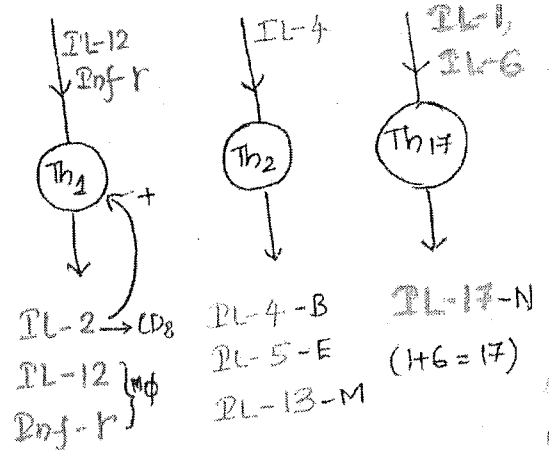 IL-12
Inf-r
Th1
+
IL-2 → CD8
IL-12 } mφ
Inf-r
IL-4
Th2
IL-4-B
IL-5-E
IL-13-M
IL-1,
IL-6
Th17
IL-17-N
(1+6=17)